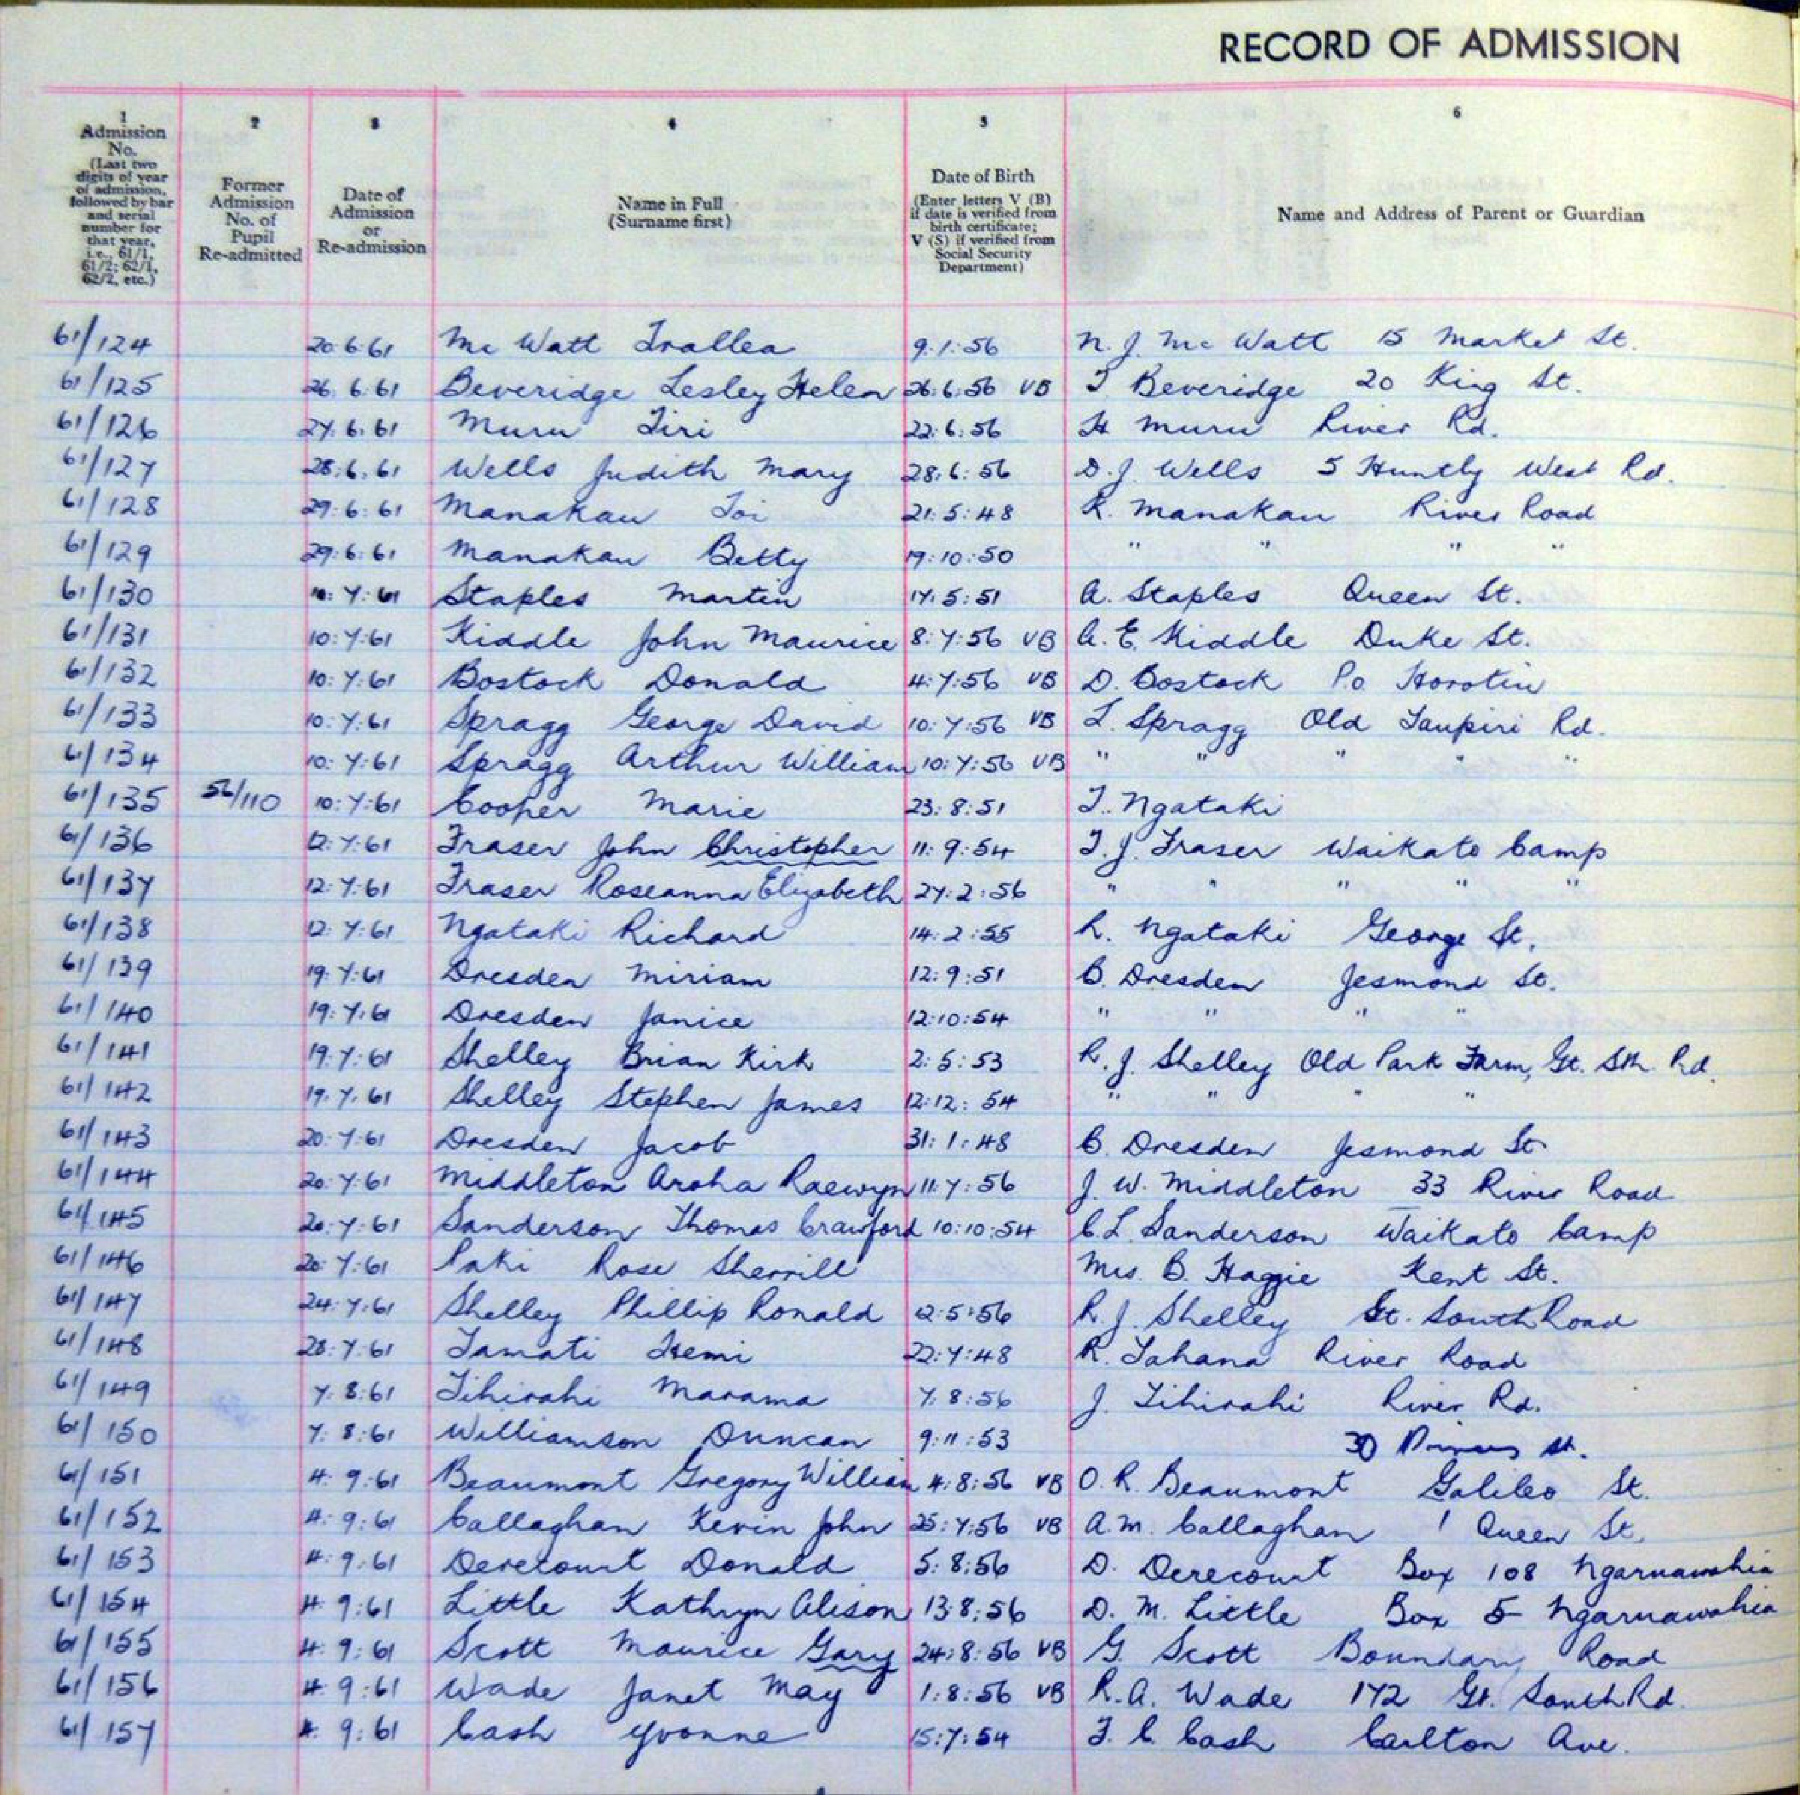 RECORD OF ADMISSION
1 2 3 4 5 6
Admission No. (Last two digits of year of admission, followed by bar and serial number for that year, i.e., 61/1, 61/2; 62/1, 62/2, etc.)
Former Admission No. of Pupil Re-admitted
Date of Admission or Re-admission
Name in Full (Surname first)
Date of Birth (Enter letters V (B) if date is verified from birth certificate; V (S) if verified from Social Security Department)
Name and Address of Parent or Guardian
61/124 20:6:61 Mc Watt 9:1:56 N. J. Mc Watt 15 Market St.
61/125 26:6:61 Beveridge Lesley Helen 26:6:56 VB T Beveridge 20 King St.
61/126 27:6:61 Muru Tiri 22:6:56 H Muru River Rd.
61/127 28:6:61 Wells Judith Mary 28:6:56 D. J. Wells 5 Huntly West Rd.
61/128 29:6:61 Manakau Toi 21:5:48 R. Manakau River Road
61/129 29:6:61 Manakau Betty 19:10:50 " " " "
61/130 10:7:61 Staples Martin 17:5:51 A. Staples Queen St.
61/131 10:7:61 Kiddle John Maurice 8:7:56 VB A. E. Kiddle Duke St.
61/132 10:7:61 Bostock Donald 4:7:56 VB D. Bostock P.o. Horotiu
61/133 10:7:61 Spragg George David 10:7:56 VB L. Spragg Old Taupiri Rd.
61/134 10:7:61 Spragg Arthur William 10:7:56 VB " " " " "
61/135 56/110 10:7:61 Cooper Marie 23:8:51 T. Ngataki
61/136 12:7:61 Fraser John Christopher 11:9:54 T. J. Fraser Waikato Camp
61/137 12:7:61 Fraser Roseanna Elizabeth 27:2:56 " " " " "
61/138 12:7:61 Ngataki Richard 14:2:55 R. Ngataki George St.
61/139 19:7:61 Dresden Miriam 12:9:51 C. Dresden Jesmond St.
61/140 19:7:61 Dresden Janice 12:10:54 " " " "
61/141 19:7:61 Shelley Brian Kirk 2:5:53 R. J. Shelley Old Park Farm, Gt. Sth. Rd.
61/142 19:7:61 Shelley Stephen James 12:12:54 " " " "
61/143 20:7:61 Dresden Jacob 31:1:48 C. Dresden Jesmond St.
61/144 20:7:61 Middleton Aroha Raewyn 11:7:56 J. W. Middleton 33 River Road
61/145 20:7:61 Sanderson Thomas Crawford 10:10:54 C. L. Sanderson Waikato Camp
61/146 20:7:61 Paki Rose Sherrill Mrs. B. Haggie Kent St.
61/147 24:7:61 Shelley Phillip Ronald 12:5:56 R. J. Shelley Gt. South Road
61/148 28:7:61 Tamati Hemi 22:7:48 R. Tahana River Road
61/149 7:8:61 Tihirahi Marama 7:8:56 J. Tihirahi River Rd.
61/150 7:8:61 Williamson Duncan 9:11:53 30 Princess St.
61/151 4:9:61 Beaumont Gregory William 4:8:56 VB O. R. Beaumont Galileo St.
61/152 4:9:61 Callaghan Kevin John 25:7:56 VB A. M. Callaghan 1 Queen St.
61/153 4:9:61 Derecourt Donald 5:8:56 D. Derecourt Box 108 Ngaruawahia
61/154 4:9:61 Little Kathryn Alison 13:8:56 D. M. Little Box 5 Ngaruawahia
61/155 4:9:61 Scott Maurice Gary 24:8:56 VB G. Scott Boundary Road
61/156 4:9:61 Wade Janet May 1:8:56 VB R. A. Wade 172 Gt. South Rd.
61/157 4:9:61 Cash Yvonne 15:7:54 F. C. Cash Carlton Ave.